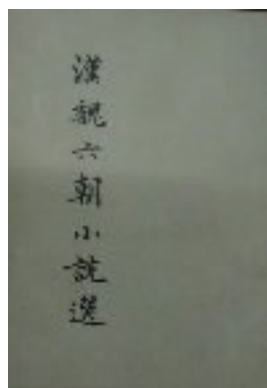 漢魏六朝小說選